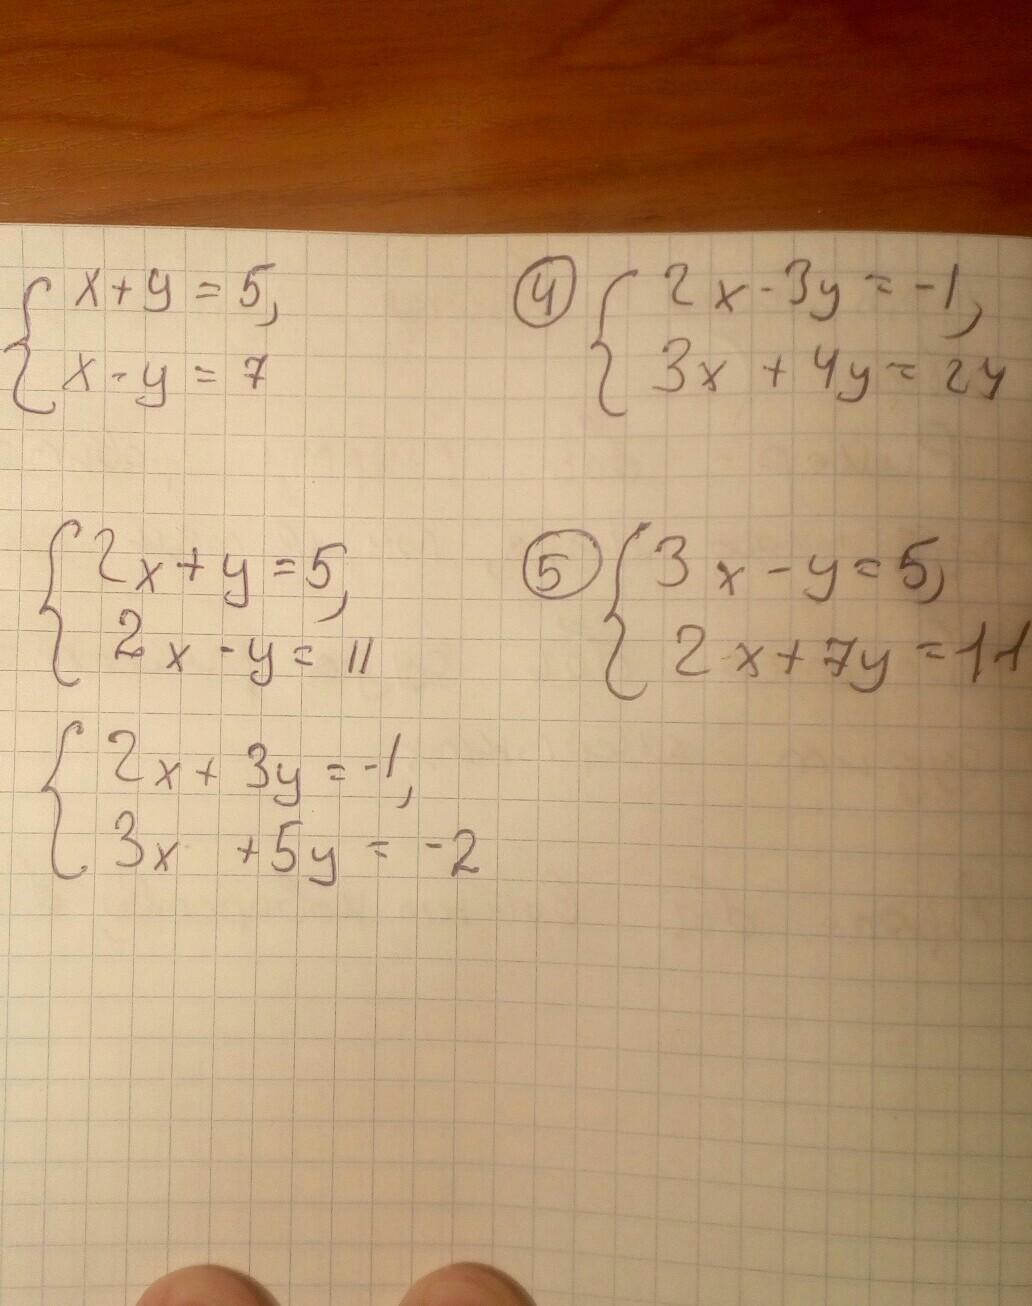 x + y = 5,
x - y = 7
④ 2x - 3y = -1,
3x + 4y = 24
2x + y = 5,
2x - y = 11
⑤ 3x - y = 5,
2x + 7y = 11
2x + 3y = -1,
3x + 5y = -2